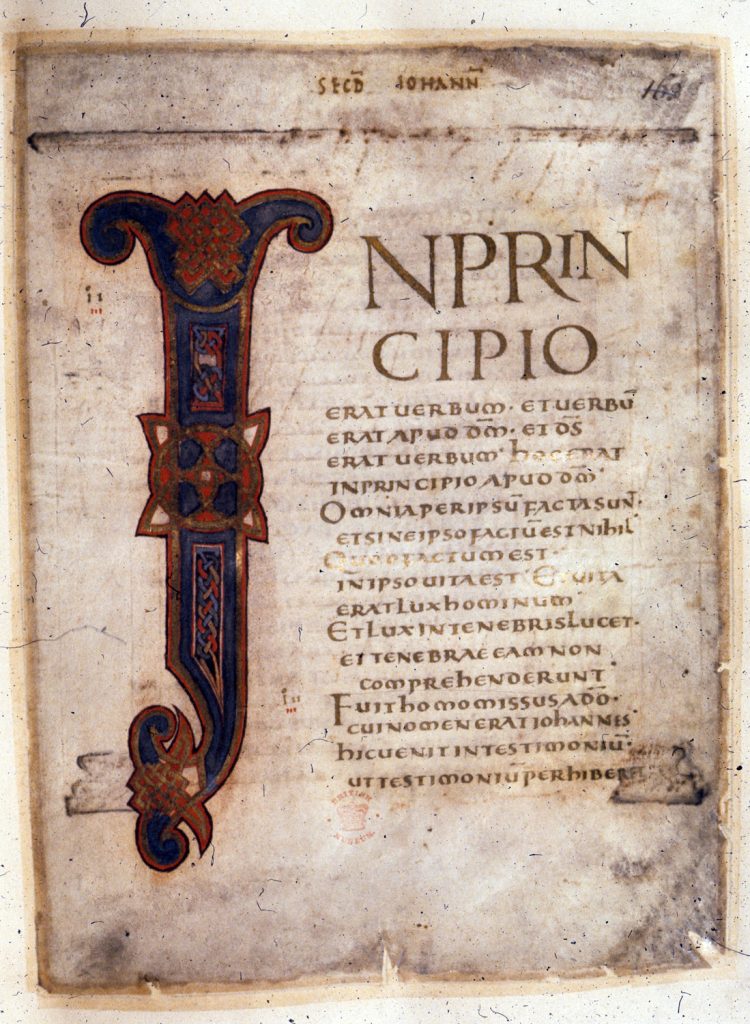 SECD̄ IOHANN̄
INPRIN
CIPIO
ERAT UERBUM · ET UERBŪ
ERAT APUD DM̄ · ET DS̄
ERAT UERBUM · hOC ERAT
IN PRINCIPIO APUD DM̄
OMNIA PER IPSŪ FACTA SUN̄ ·
ET SINE IPSO FACTŪ EST NIhIL
QUOD FACTUM EST ·
IN IPSO UITA EST · ET UITA
ERAT LUX hOMINUM
ET LUX IN TENEBRIS LUCET ·
ET TENEBRAE EAM NON
COMPREhENDERUNT
FUIT hOMO MISSUS A DŌ ·
CUI NOMEN ERAT IOhANNES
hIC UENIT IN TESTIMONIŪ ·
UT TESTIMONIŪ PERhIBER
BRITISH
MUSEUM